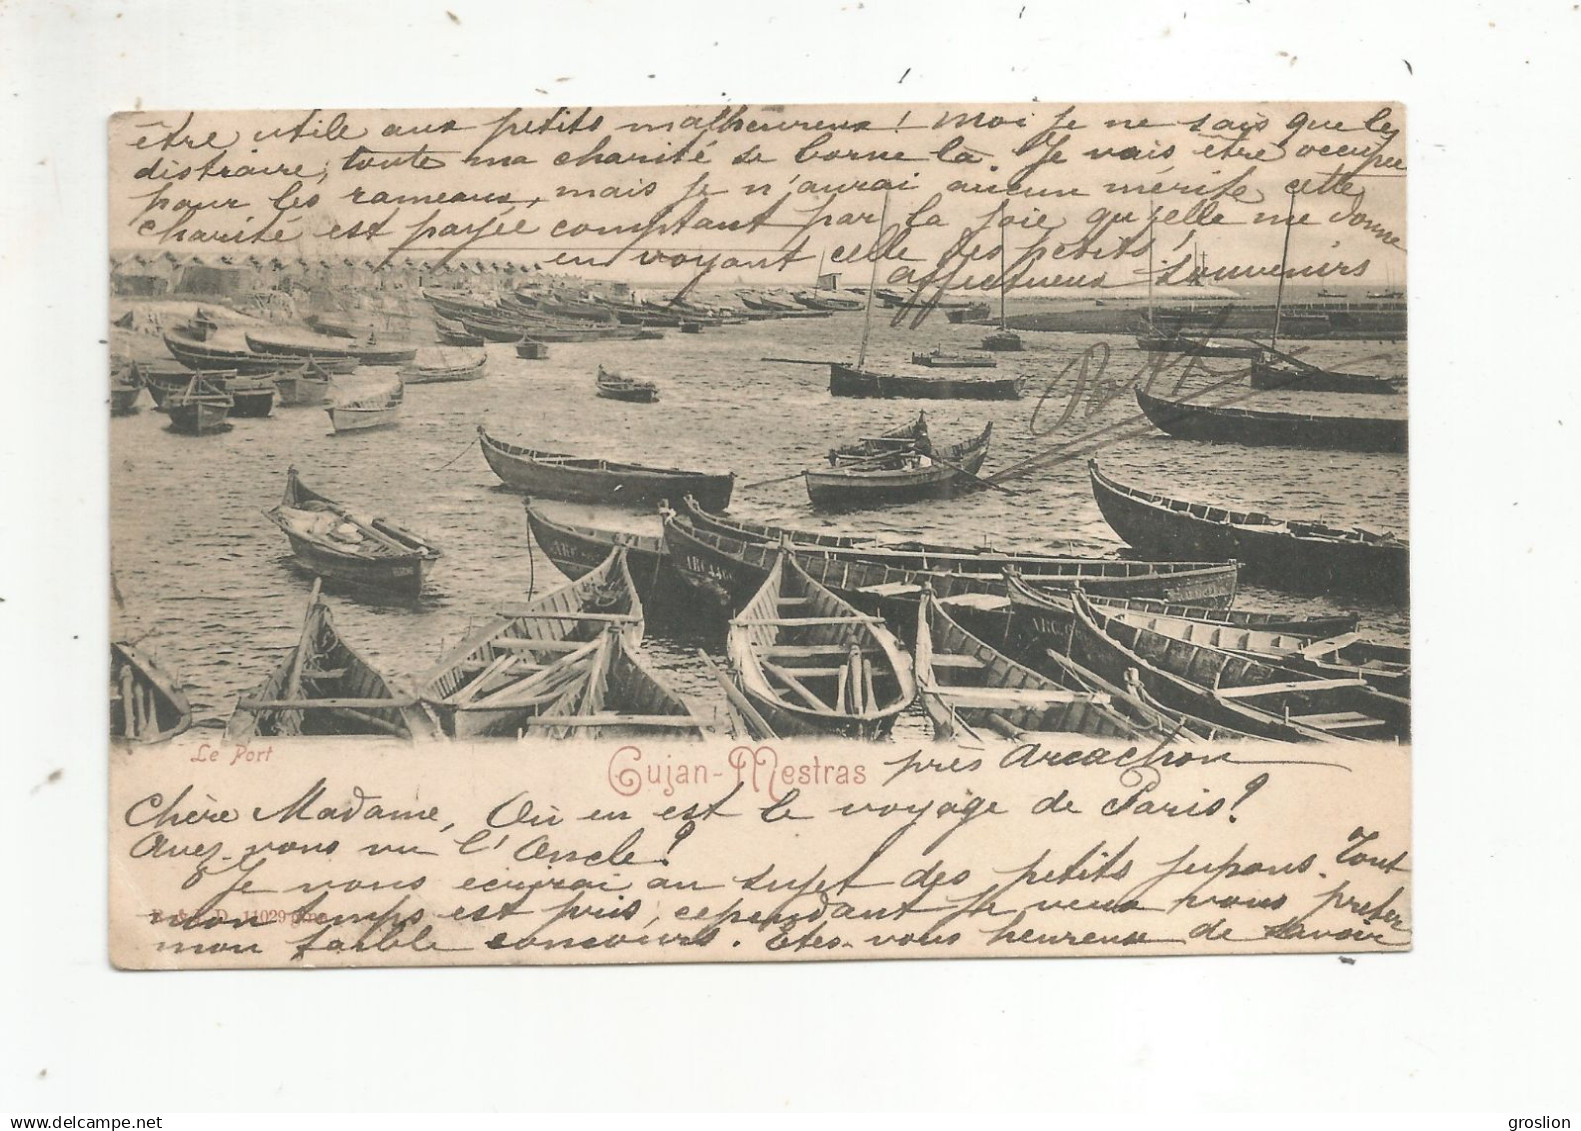 être utile aux petits malheureux ! Moi je ne sais que les
distraire, toute ma charité se borne là. Je vais être occupée
pour les rameaux, mais je n'aurai aucun mérite cette
charité est payée comptant par la joie qu'elle me donne
en voyant celle des petits !
affectueux souvenirs
ARC 4460
ARC
ARC
Le Port
Gujan-Mestras près Arcachon
Chère Madame, Où en est le voyage de Paris ?
Avez-vous vu l'Oncle ?
Je vous écrirai au sujet des petits jupons. Tout
mon temps est pris, cependant je veux vous prêter
D. 11029
mon faible concours. Êtes-vous heureux de savoir
groslion